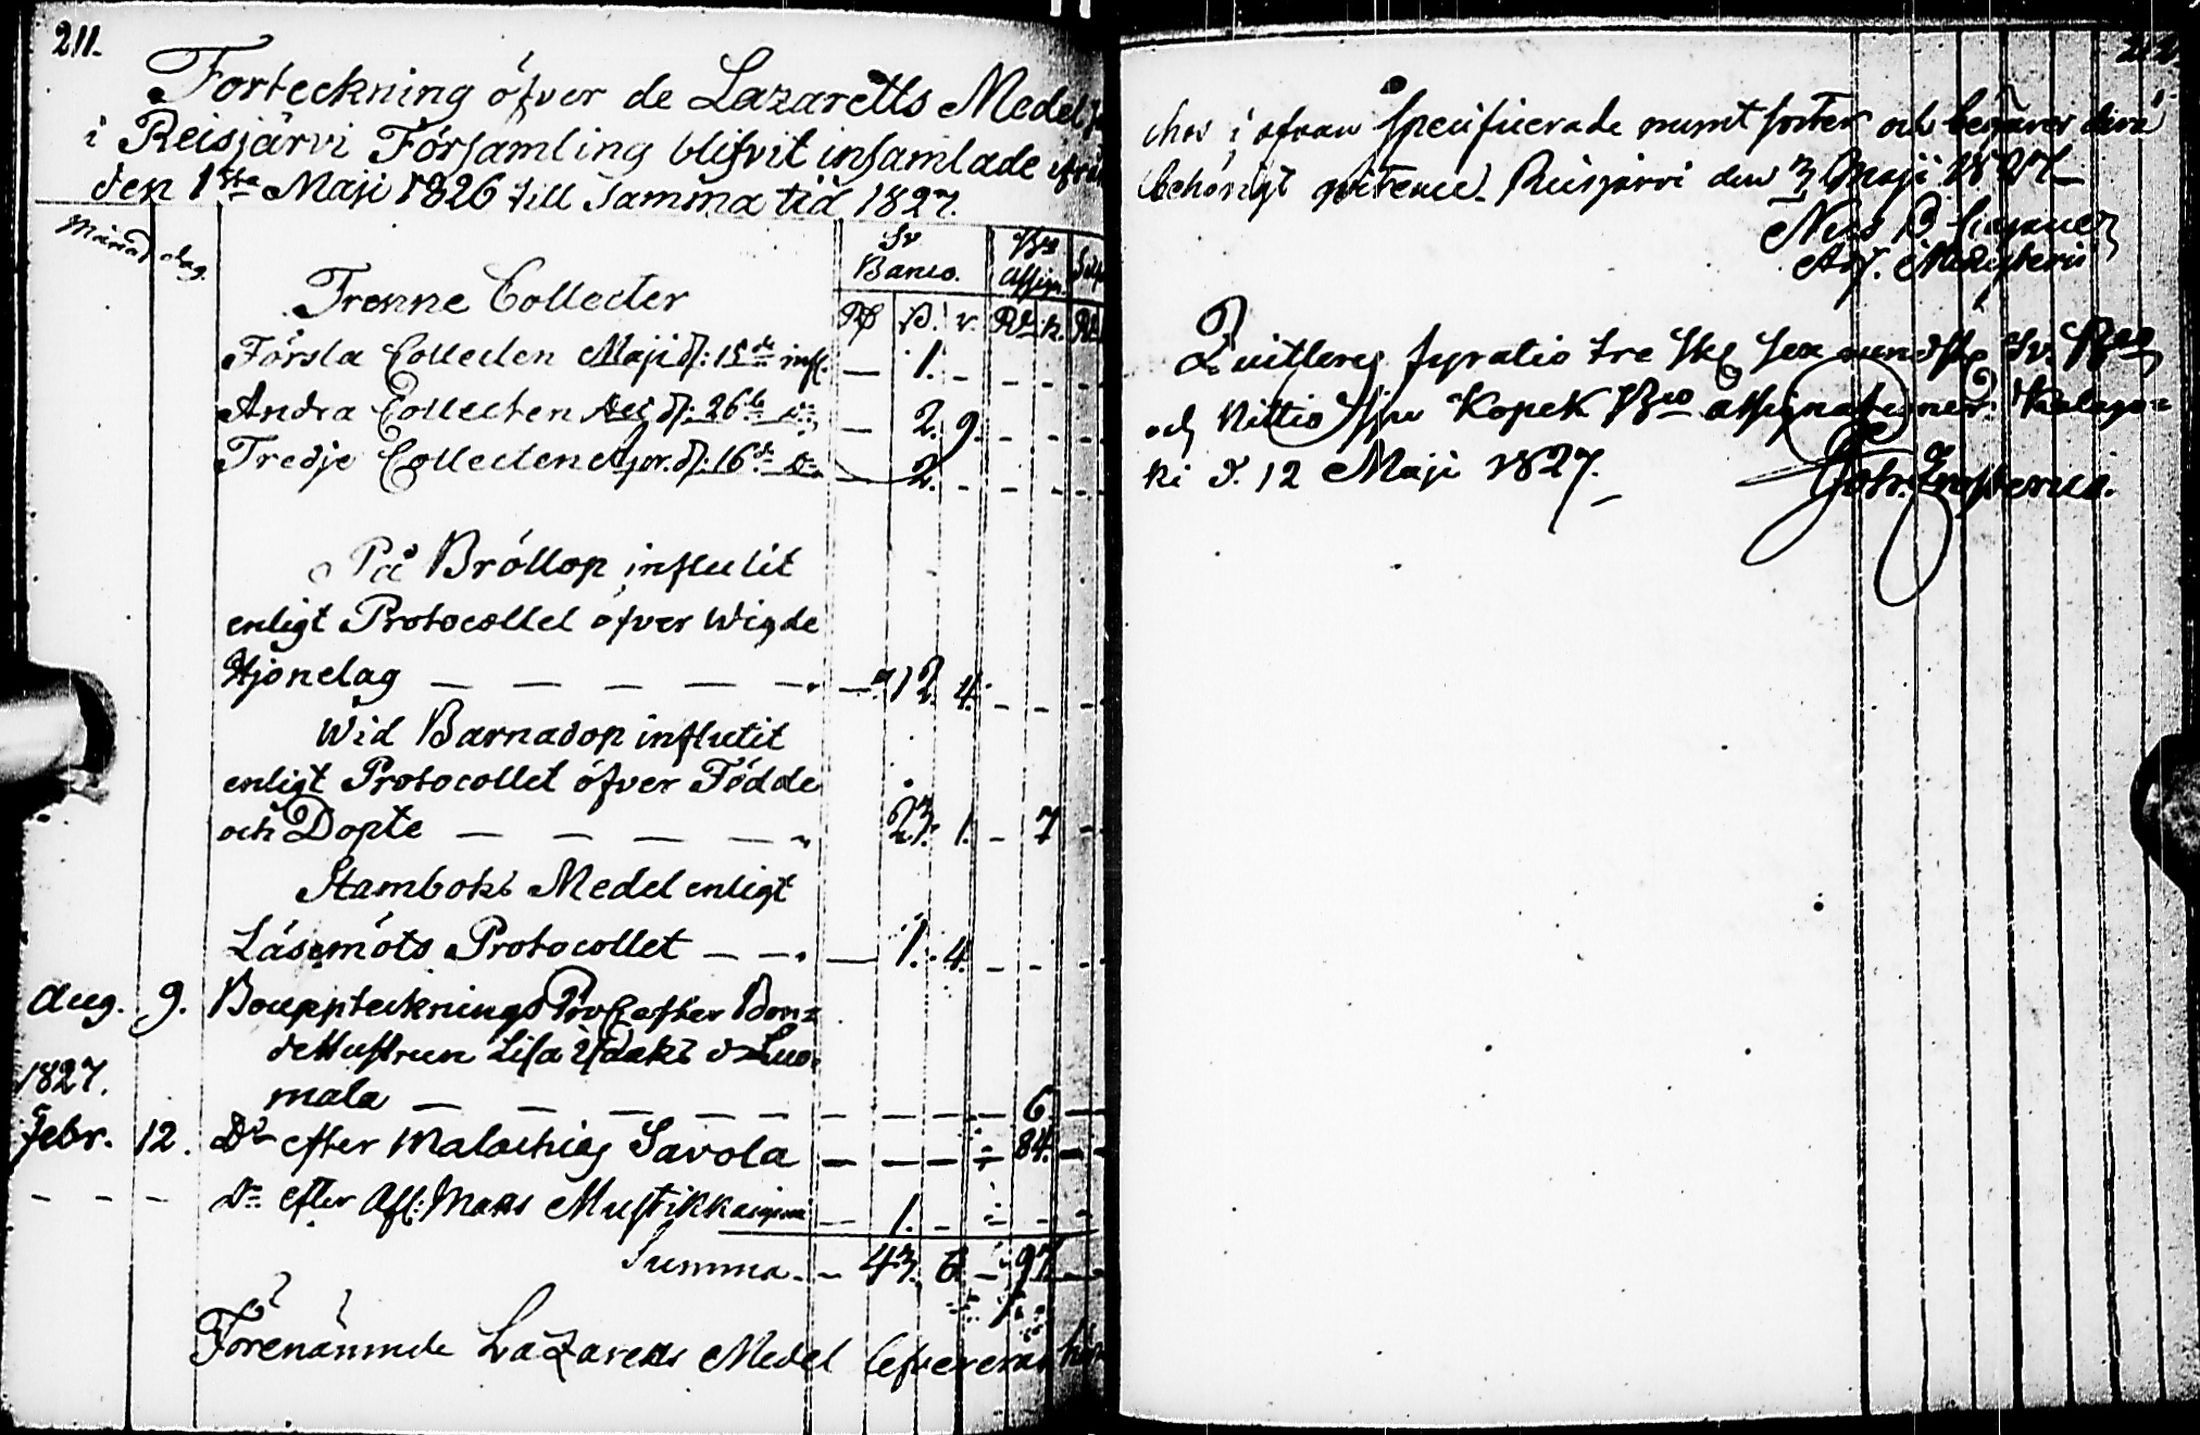 211.
Forteckning öfver de Lazaretts Medel
i Reisjärvi Församling blifvit insamlade ifrån
den 1sta Maji 1826 till samma tid 1827.
Månad dag.
Sv. Banco. Bco Assign.
Rd β. r. Rb. k.
Trenne Collecter
Första Collecten Maji d: 15de infl. — 1. - - -
Andra Collecten d: 26te do — 2. 9. - -
Tredje Collecten d: 16de do — 2. - - -
På Bröllop influtit
enligt Protocollet öfver Wigde
Hjonelag — — — — — 12. 4. - -
Wid Barnadop influtit
enligt Protocollet öfver Födde
och Döpte — — — — 23. 1. - 7
Stamboks Medel enligt
Läsemöts Protocollet — — — 1. 4. - -
Aug. 9. Boupptecknings Proc efter Bon=
de Hustrun Lisa Isaks d. Luo=
1827.
mala — — — — — — — — 6.
Febr. 12. Do efter Malachias Savola — — — - 84.
- - - Do efter Afl: Mats Mustikkaniemi — 1. - - -
Summa - - 43. 6. - 97.
Förenämnde Lazaretts Medel lefvereras
212.
i ofvan specificerade mynt sorter och begärer derå
behörigt qvitence. Reisjärvi den 3 Maji 1827.
Nils B.
Adj. Ministerii
Quitteras fyratio tre sk sex rundst Sv. Bco
och Nittio sju Kopek Bco assignationer. Kalajo=
ki d. 12 Maji 1827.
Joh.